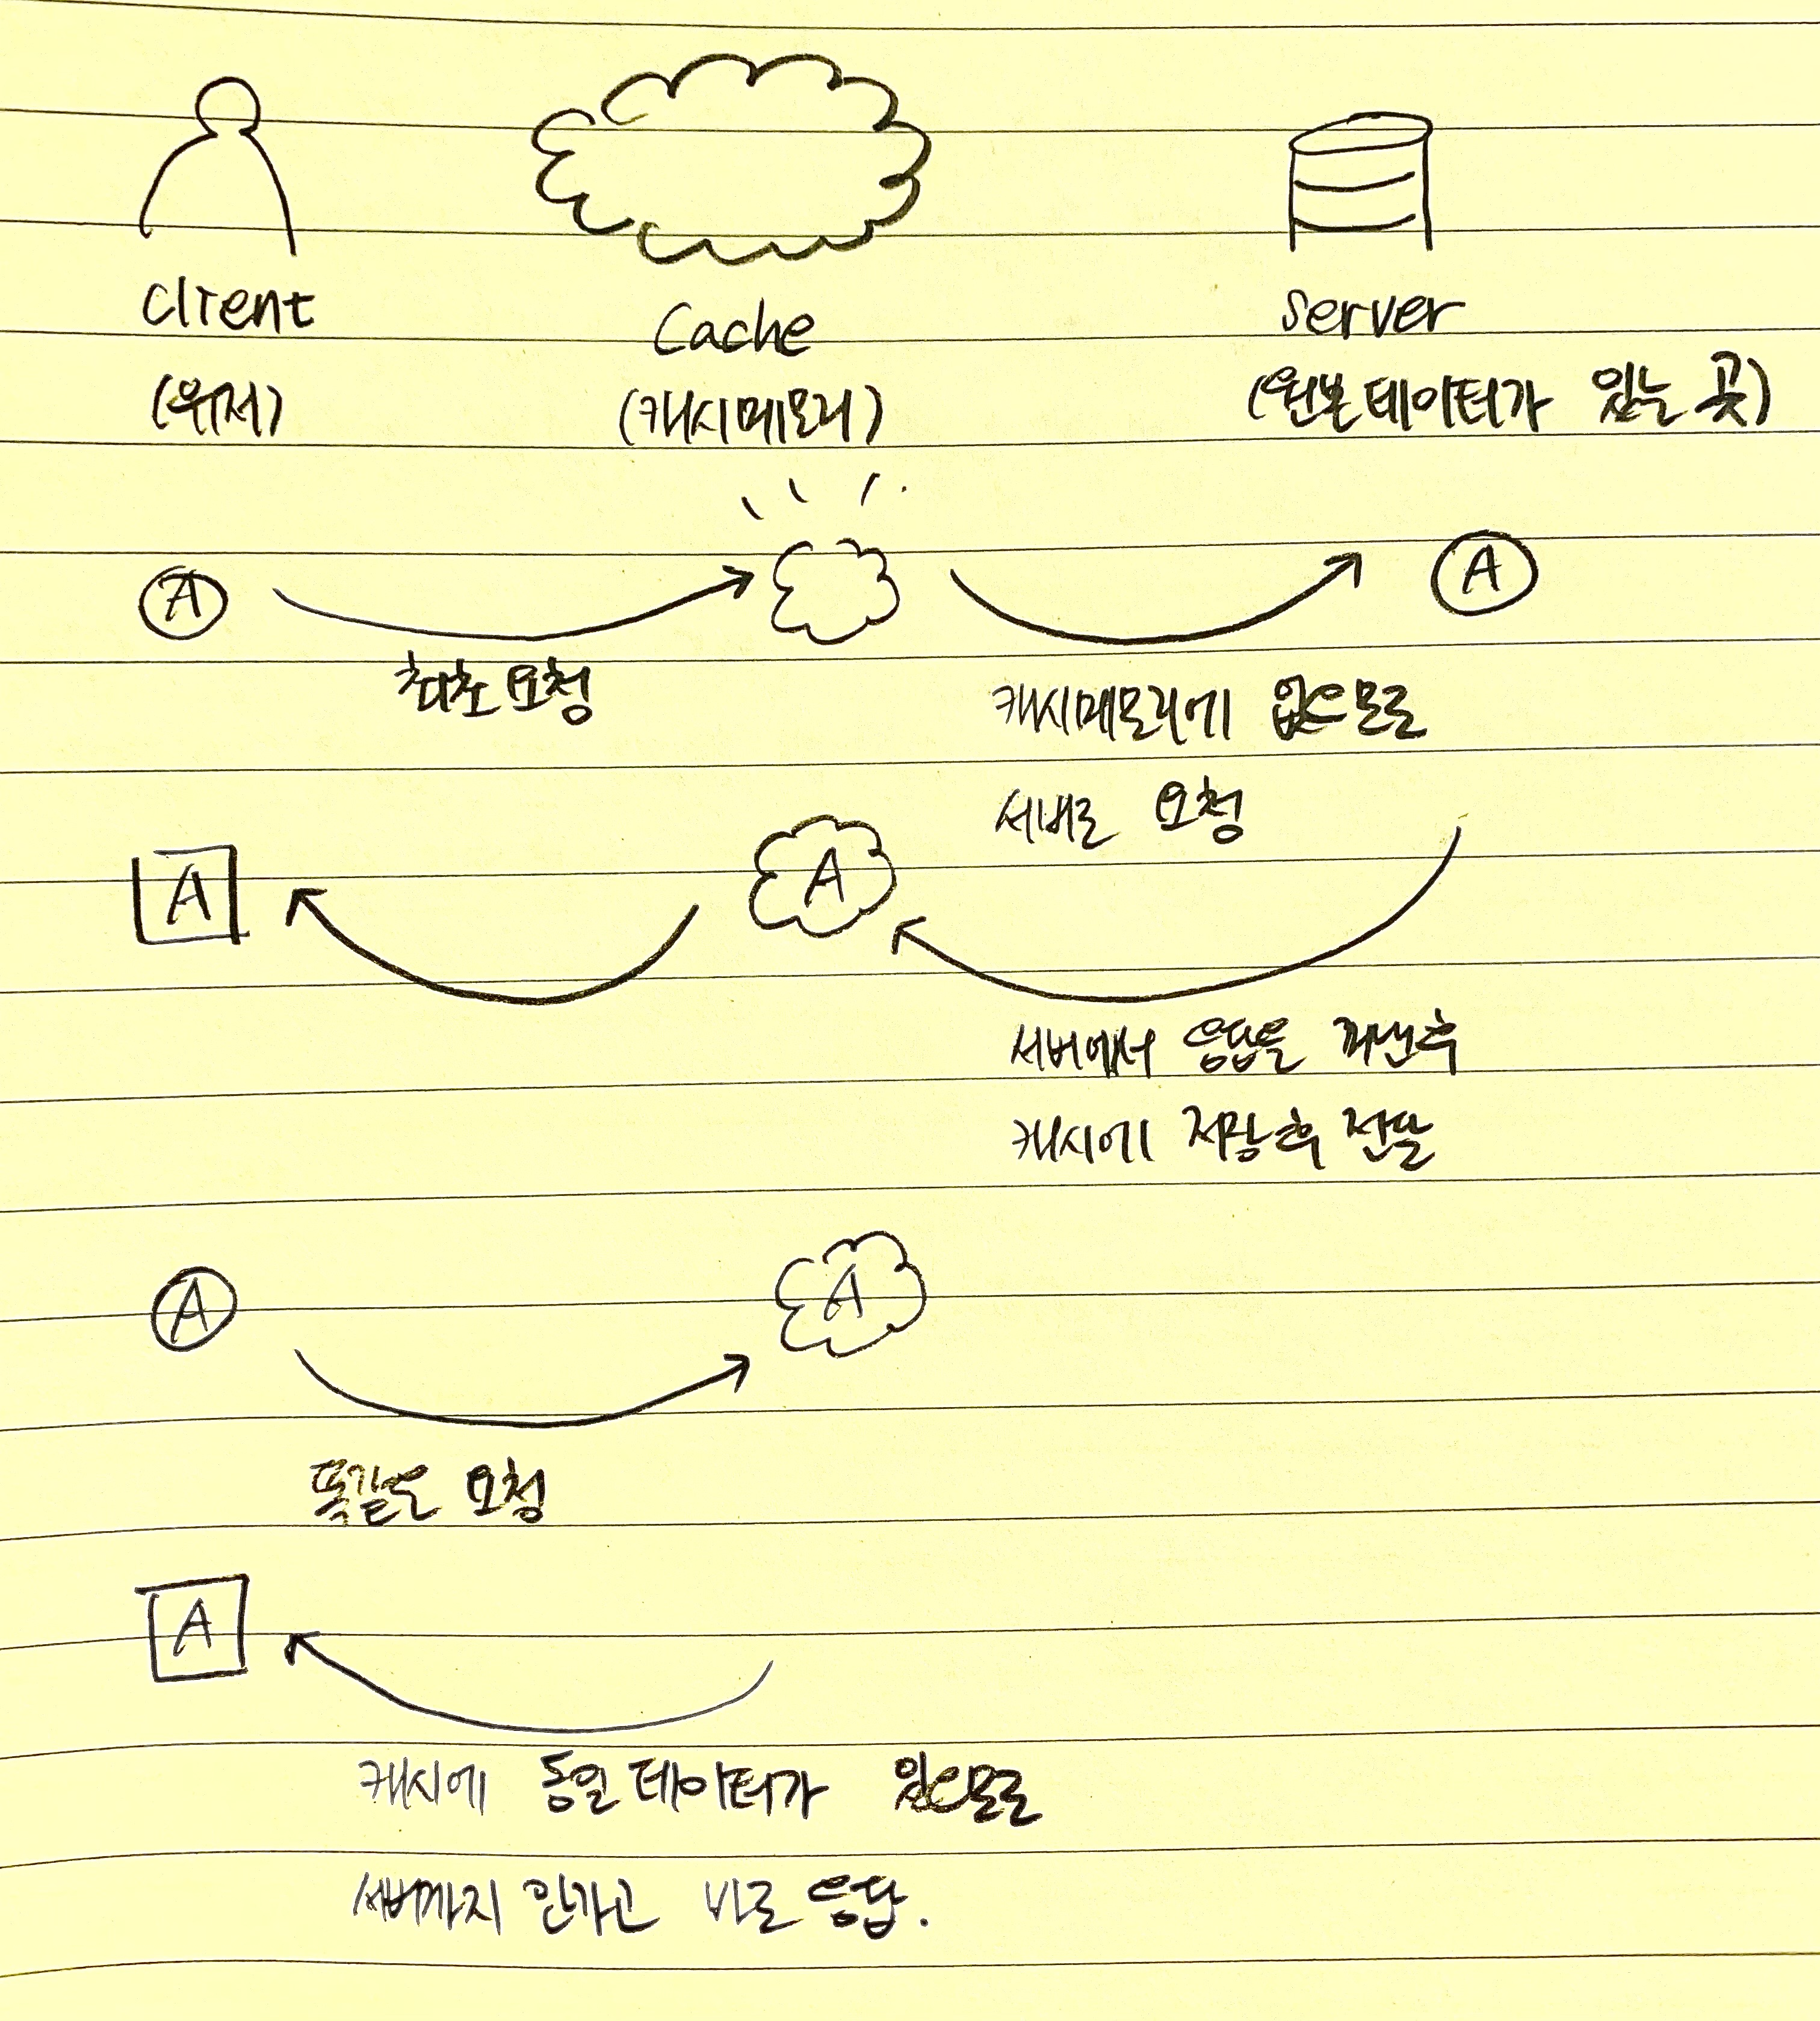 client
Cache
server
(유저)
(캐시메모리)
(원본데이터가 있는 곳)
A
A
최초요청
캐시메모리에 없으므로
세버로 요청
A
A
서버에서 응답을 꺼낸후
캐시에 저장후 전달
A
A
똑같은 요청
A
캐시에 동일데이터가 있으므로
서버까지 안가고 바로 응답.